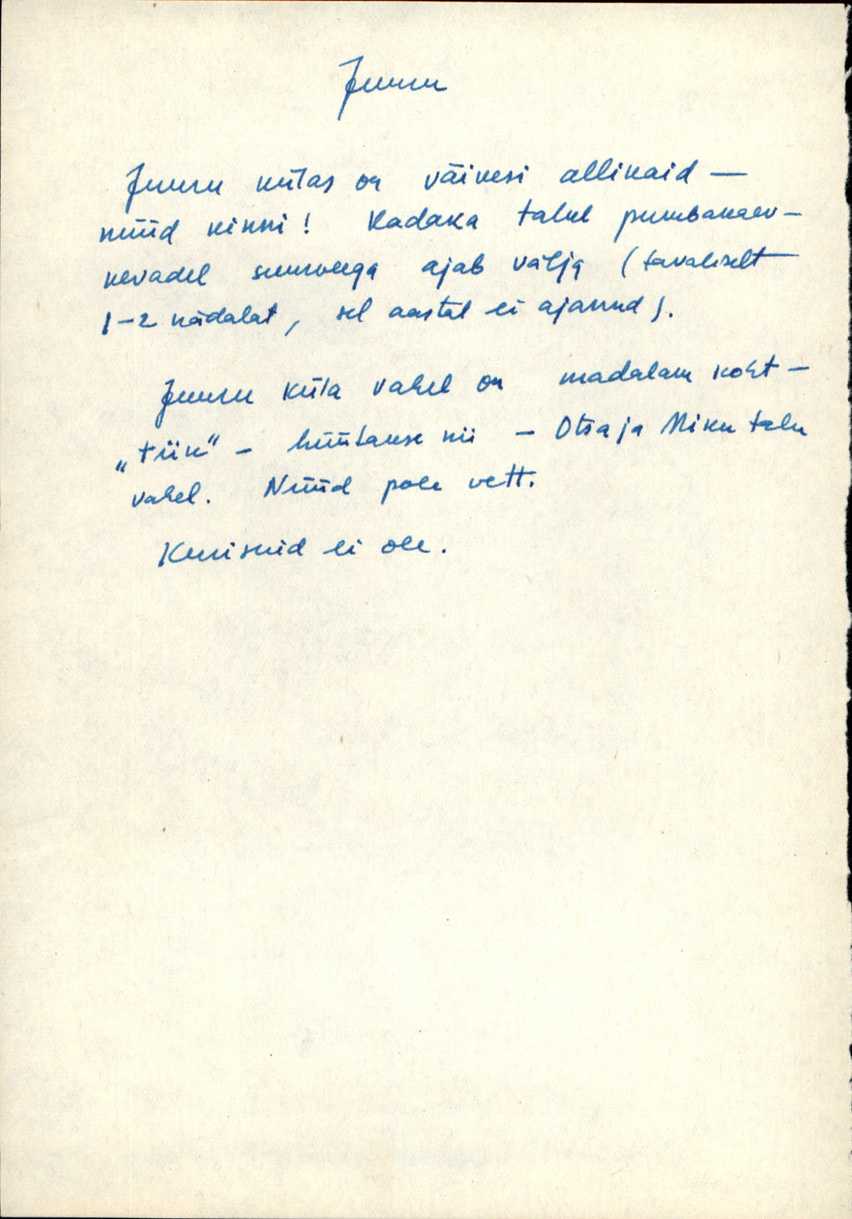 Juuru
Juuru külas on väikesi allikaid —
nüüd kinni! Kadaka talul pumbakaev —
kevadel suurveega ajab välja (tavaliselt
1-2 nädalat, sel aastal ei ajanud).
Juuru küla vahel on madalam koht —
„tiik" — hüütakse nii — Otsa ja Miku talu
vahel. Nüüd pole vett.
Kurisuid ei ole.